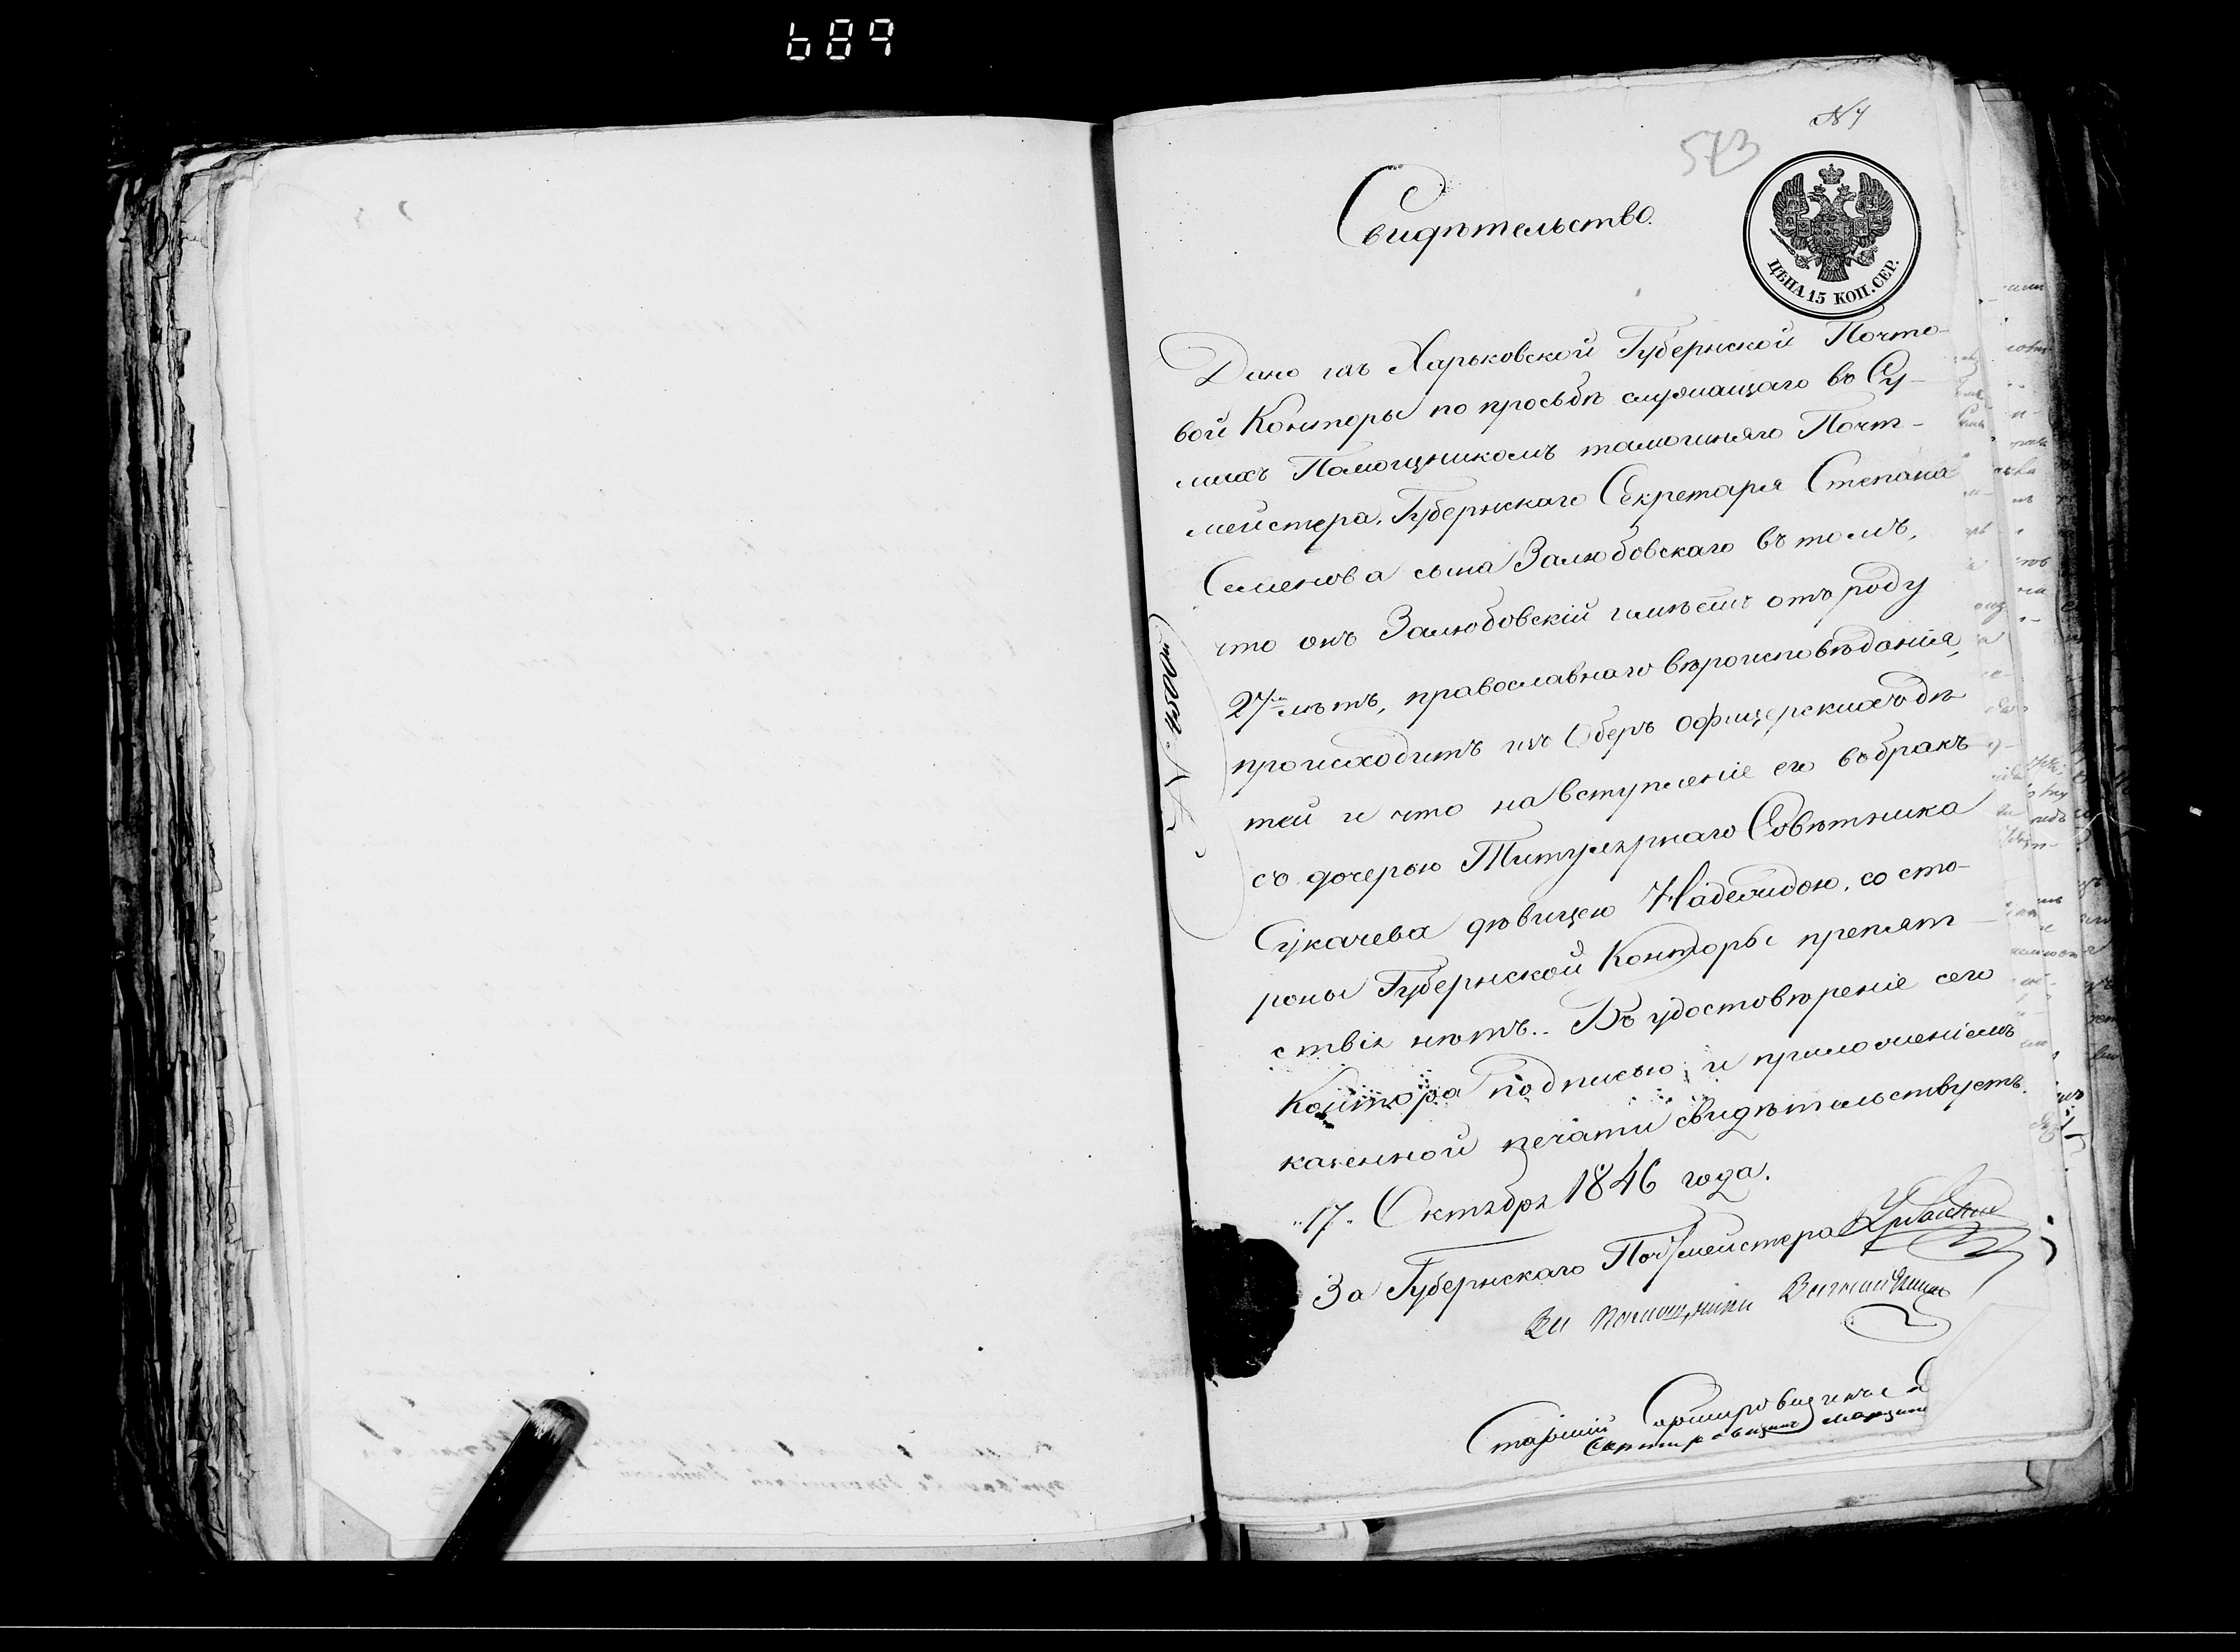 689
№ 4
573
Свидѣтельство.
ЦѢНА 15 КОП. СЕР.
Дано изъ Харьковской Губернской Почто-
вой Конторы по просьбѣ служащаго въ Су-
махъ Помощникомъ тамошняго Почт-
мейстера, Губернскаго Секретаря Степана
Семенова сына Залюбовскаго въ томъ,
что онъ Залюбовскій имѣетъ отъ роду
27 лѣтъ, православнаго вѣроисповѣданія,
происходитъ изъ Оберъ офицерскихъ дѣ
тей и что на вступленіе его въ бракъ
съ дочерью Титулярнаго Совѣтника
Сукачева дѣвицею Надеждою, со сто-
роны Губернской Конторы препят-
ствія нѣтъ. Въ удостовѣреніе сего
Контора подписью и приложеніемъ
казенной печати свидѣтельствуетъ.
"17" Октября 1846 года.
За Губернскаго Почтмейстера
За Помощника
Старшій Сортировщикъ
Сортировщикъ
№ 4500